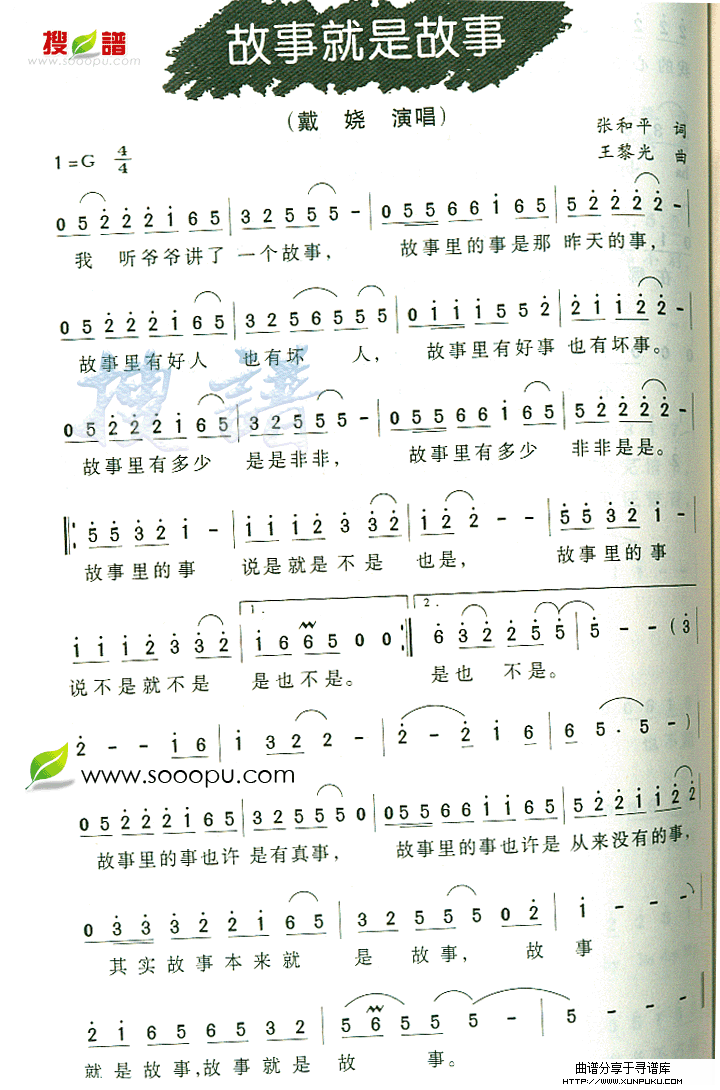 搜谱
www.sooopu.com
故事就是故事
(戴 娆 演唱)
张和平 词
1=G 4/4
王黎光 曲
0 5 2̇ 2̇ 2̇ 1̇ 6 5 | 3 2 5 5 5 - | 0 5 5 6 6 1̇ 6 5 | 5 2̇ 2̇ 2̇ 2̇ - |
我 听爷爷讲了 一个故事, 故事里的事是那 昨天的事,
0 5 2̇ 2̇ 2̇ 1̇ 6 5 | 3 2 5 6 5 5 5 | 0 1̇ 1̇ 1̇ 5 5 2 | 2̇ 1̇ 1̇ 2̇ 2̇ - |
故事里有好人 也有坏 人, 故事里有好事 也有坏事。
0 5 2̇ 2̇ 2̇ 1̇ 6 5 | 3 2 5 5 5 - | 0 5 5 6 6 1̇ 6 5 | 5 2̇ 2̇ 2̇ 2̇ - |
故事里有多少 是是非非, 故事里有多少 非非是是。
‖: 5̇ 5̇ 3̇ 2̇ 1̇ - | 1̇ 1̇ 1̇ 2̇ 3̇ 3̇ 2̇ | 1̇ 2̇ 2̇ - - | 5̇ 5̇ 3̇ 2̇ 1̇ - |
故事里的事 说是就是不是 也是, 故事里的事
1. 2.
1̇ 1̇ 1̇ 2̇ 3̇ 3̇ 2̇ | 1̇ 6 6 5 0 0 :‖ 6 3̇ 2̇ 2̇ 5̇ 5̇ | 5̇ - - (3̇ |
说不是就不是 是也不是。 是也 不是。
2̇ - - 1̇ 6 | 1̇ 3 2 2 - - | 2̇ - 2̇ 1̇ 6 | 6 5 . 5 - ) |
www.sooopu.com
0 5 2̇ 2̇ 2̇ 1̇ 6 5 | 3 2 5 5 5 0 | 0 5 5 6 6 1̇ 1̇ 6 5 | 5 2̇ 2̇ 1̇ 1̇ 2̇ 2̇ |
故事里的事也许 是有真事, 故事里的事也许是 从来没有的事,
0 3̇ 3̇ 3̇ 2̇ 2̇ 1̇ 6 5 | 3 2 5 5 5 0 2̇ | 1̇ - - - |
其实故事本来就 是 故事, 故 事
2̇ 1̇ 6 5 6 5 3 2 | 5 6 5 5 - | 5 - - - ‖
就是故事,故事就是 故 事。
曲谱分享于寻谱库
HTTP://WWW.XUNPUKU.COM